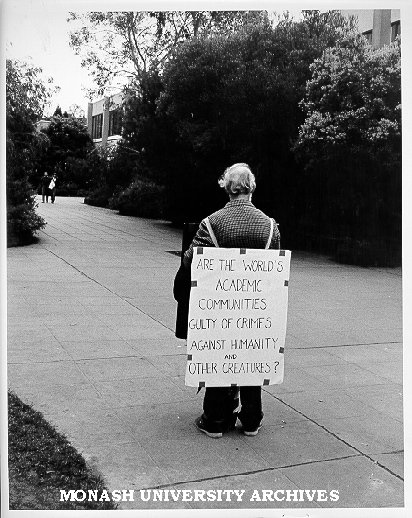 ARE THE WORLD'S
ACADEMIC
COMMUNITIES
GUILTY OF CRIMES
AGAINST HUMANITY
AND
OTHER CREATURES?
MONASH UNIVERSITY ARCHIVES